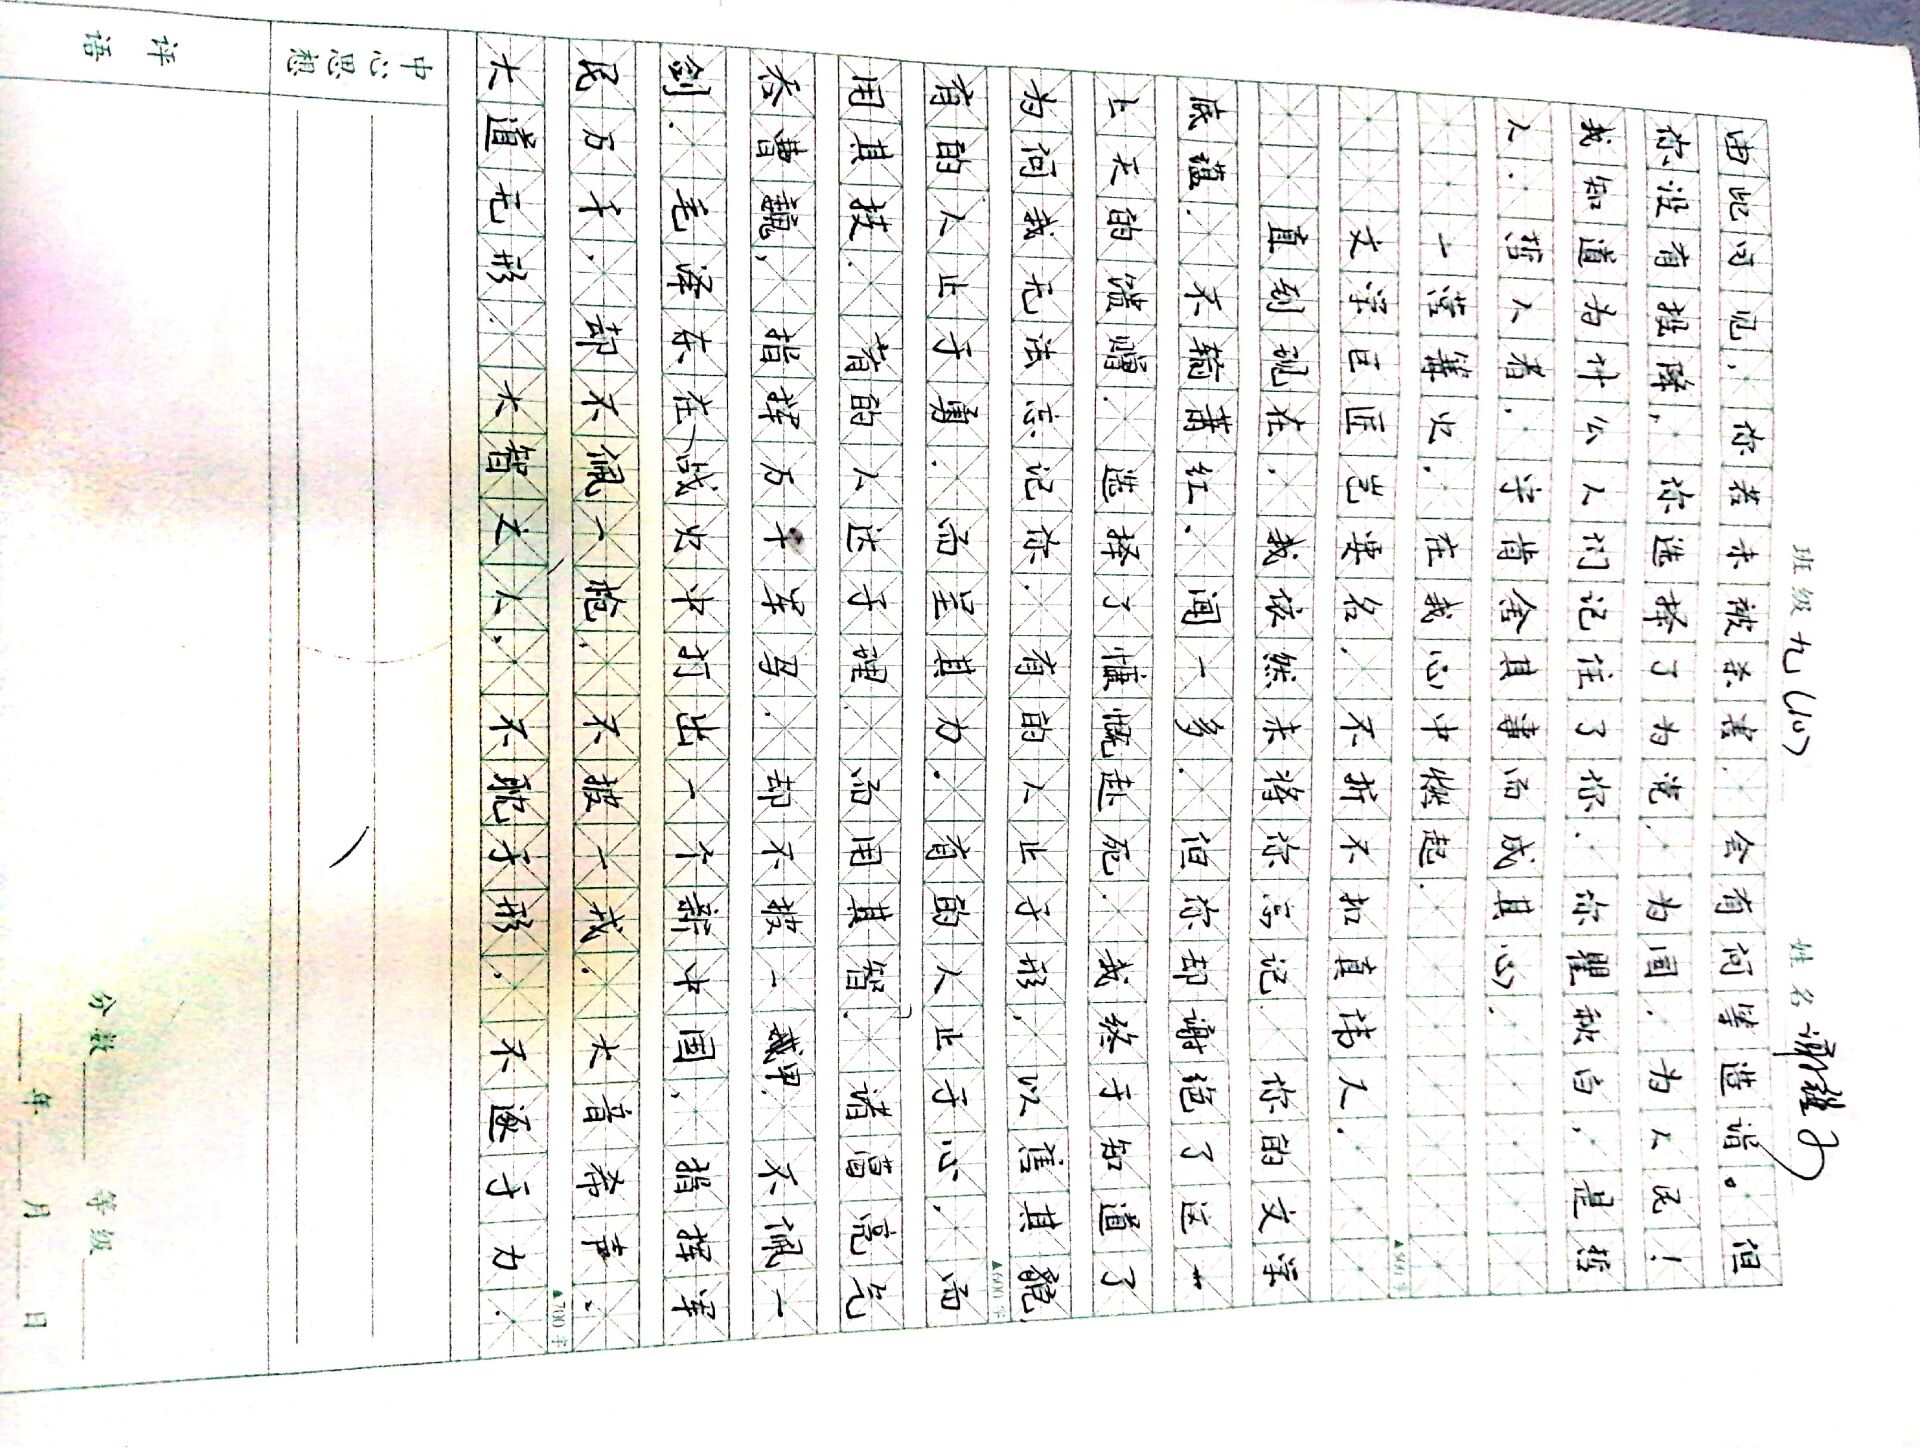 班级 九(10) 姓名
由此可见,你若未被杀害.会有何等造诣。但
你没有投降,你选择了为党.为国.为人民!
我知道为什么人们记住了你.你瞿秋白,是哲
人.哲人者.宁肯舍其事而成其心.
一漟篝火.在我心中燃起.
▲500字
文学巨匠岂要名.不折不扣真伟人.
直到现在.我依然未将你忘记.你的文学
底蕴.不输萧红.闻一多.但你却谢绝了这一
上天的馈赠.选择了慷慨赴死.我终于知道了
为何我无法忘记你.有的人止于形,以售其貌
▲600字
有的人止于勇.而呈其力.有的人止于心.而
用其技.有的人达于理.而用其智.诸葛亮气
吞曹魏,指挥万千军马.却不披一戴甲.不佩一
剑.毛泽东在战火中打出一个新中国,指挥军
民万千.却不佩一枪.不披一戎.大音希声.
▲700字
大道无形.大智之人.不耽于形.不逐于力.
中心思想
评语
分数 等级
年 月 日